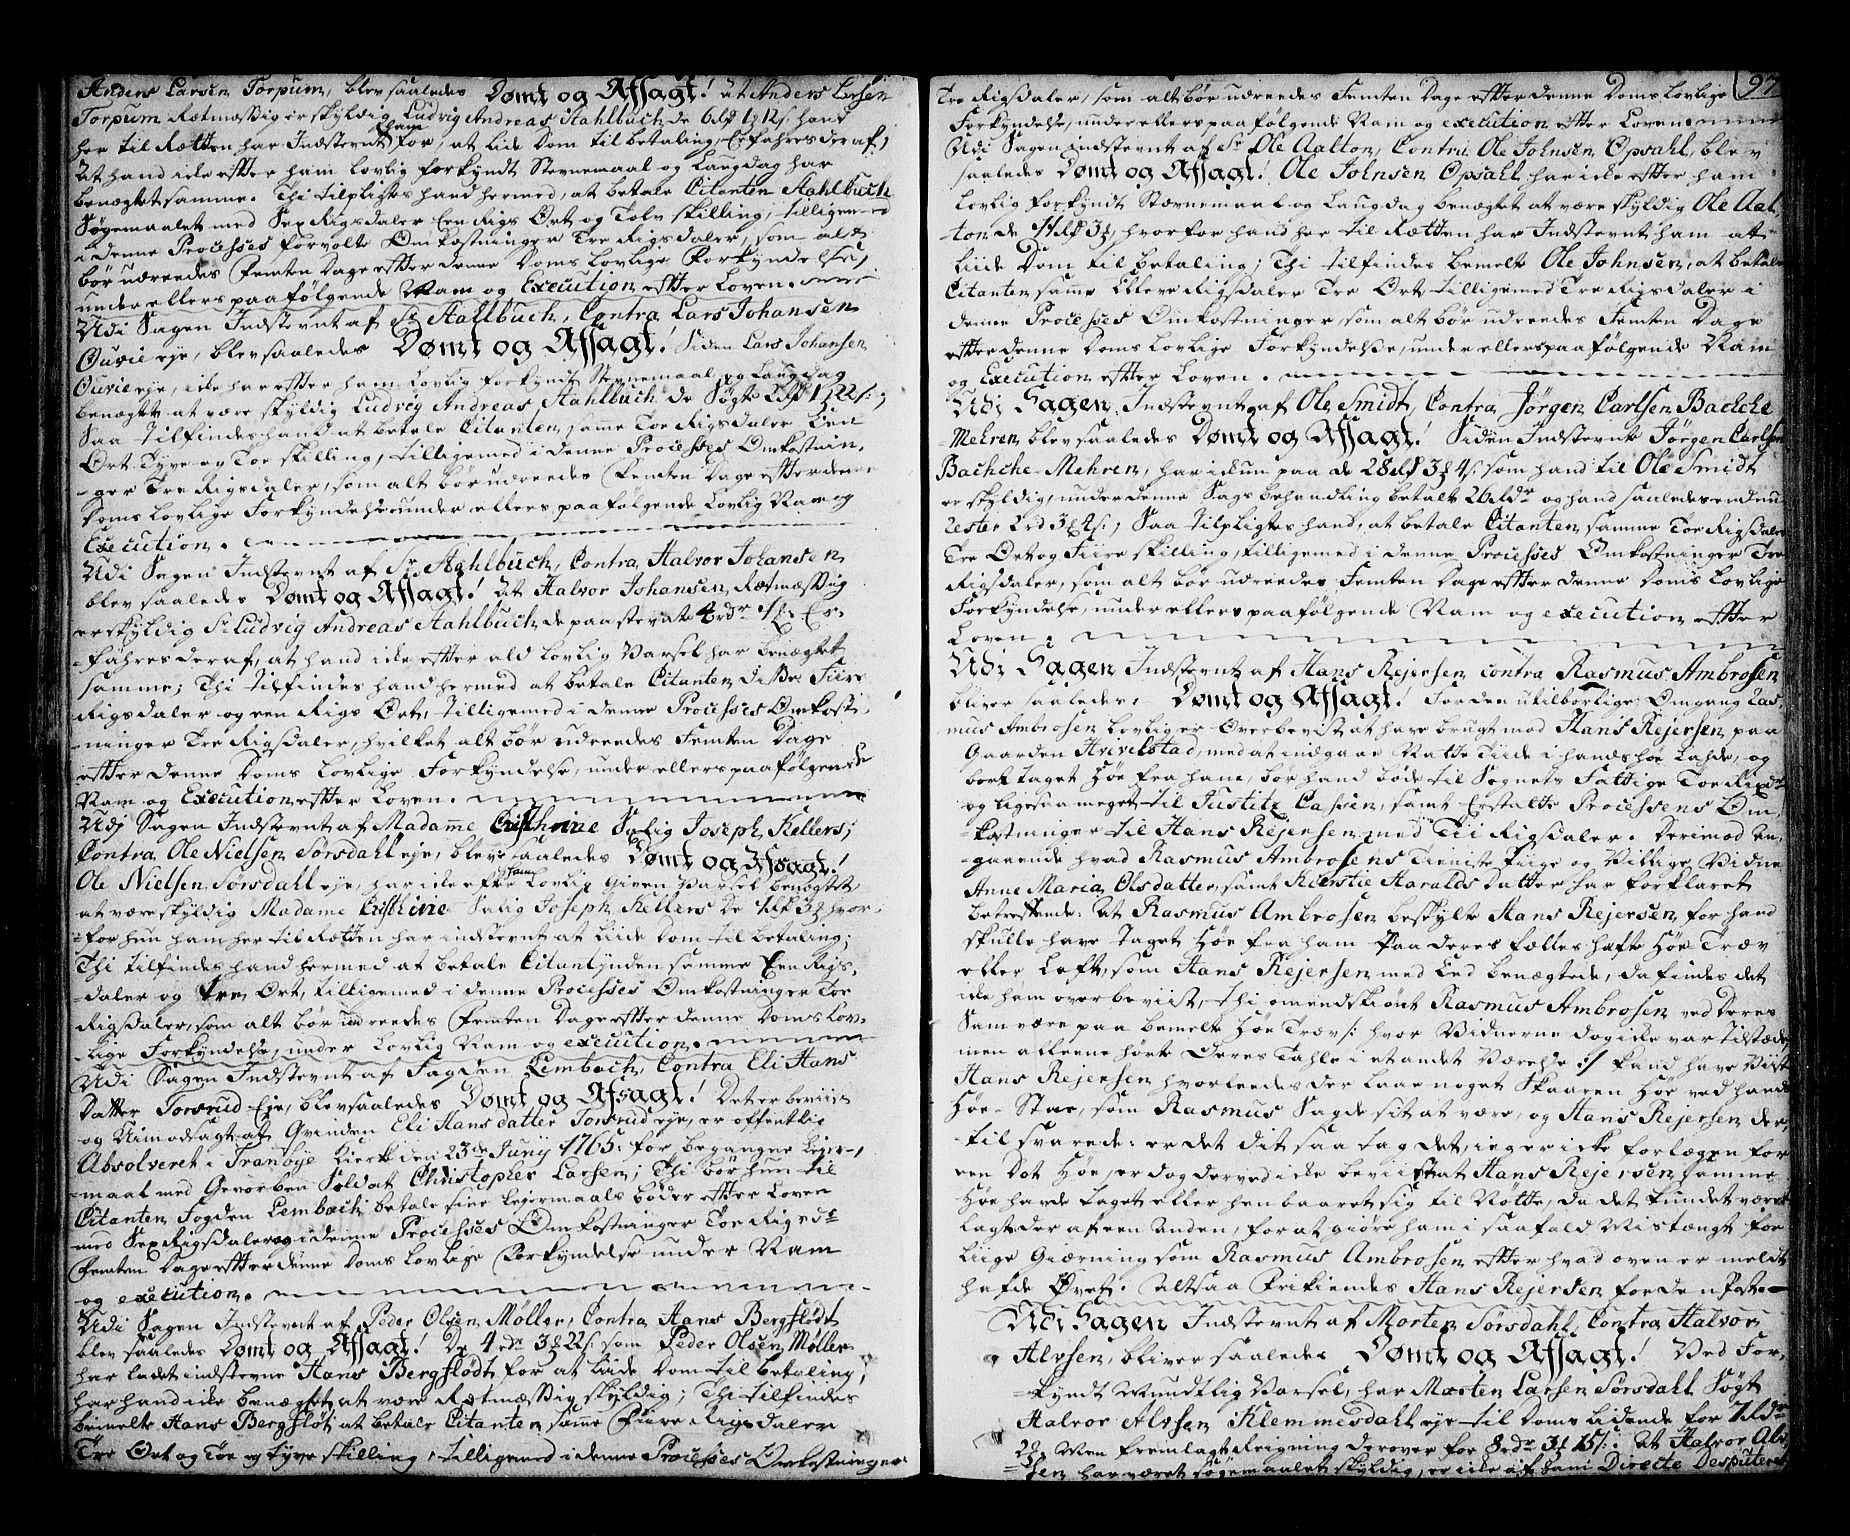 Anders Larsen Torpum, blev saaledes Dømt og Afsagt! at Anders Larsen
Torpum Rætmæssig er skyldig Ludvig Andreas Stahlbuch de 6 rdr 1 ₰ 12 s: hand
her til Rætten har Indstevnt ham for, at lide Dom til betaling, Erfahres deraf,
at hand icke efter ham Lovlig forkyndt Stevnemaal og Laugdag har
benægtet samme. Thi tilpligtes hand hermed, at betale Citanten Stahlbuch
Søgemaalet med Sex Rigsdaler Een Rigs Ort og Tolv skilling, tilligemed
i denne Processes forvolte Omkostninger Tre Rigsdaler, som alt
bør udreedes Femten Dage efter denne Doms Lovlige Forkyndelse,
under ellers paafølgende Nam og Execution efter Loven.
Udi Sagen Indstevnt af Sr Stahlbuch, Contra Lars Johansen
Ourie eje, blev saaledes Dømt og Afsagt! Siden Lars Johansen
Ourie eje, icke har efter ham Lovlig forkyndt Stevnemaal og Laugdag
benægtet at være skyldig Ludvig Andreas Stahlbuch de Søgte 2 rdr 1 ₰ 22 s;
Saa tilfindes hand at betale Citanten samme Toe Rigsdaler Een
Ort Tyve og Toe skilling, tilligemed i denne Processes Omkostnin-
ger Tre Rigsdaler, som alt bør udreedes Femten Dage efter denne
Doms Lovlige Forkyndelse under ellers paafølgende Lovlig Nam og
Execution.
Udi Sagen Indstevnt af Sr Stahlbuch, Contra Halvor Johansen
blev saaledes Dømt og Afsagt! At Halvor Johansen Rætmæssig
er skyldig Sr Ludvig Andreas Stahlbuch de paastevnte 4 rdr 1 ₰: Er-
fahres deraf, at hand icke efter ald Lovlig Varsel har benægtet
samme; Thi tilfindes hand hermed at betale Citanten disse Fiire
Rigsdaler og een Rigs Ort, tilligemed i denne Processes Omkost-
ninger Tre Rigsdaler, hvilket alt bør udreedes Femten Dage
efter denne Doms Lovlige Forkyndelse, under ellers paafølgende
Nam og Execution efter Loven.
Udj Sagen Indstevnt af Madame Cristhine Salig Joseph Kellers;
Contra Ole Nielsen Sørsdahl eje, blev saaledes Dømt og Afsagt!
Ole Nielsen Sørsdahl eje, har icke efter ham Lovlig Given Varsel benægtet
at være skyldig Madame Cristhine Salig Joseph Kellers De 1 rdr 3 ₰ hvor-
for hun ham her til Rætten har indstevnt at Liide Dom til betaling;
Thi tilfindes hand hermed at betale Citantinden samme Een Rigs-
daler og Tre Ort, tilligemed i denne Processes Omkostninger Toe
Rigsdaler, som alt bør udreedes Femten Dage efter denne Doms Lov-
lige Forkyndelse, under Lovlig Nam og execution.
Udi Sagen Indstevnt af Fogden Lembach, Contra Eli Hans
Datter Torsrud Eje, blev saaledes Dømt og Afsagt! Det er beviist
og Uimodsagt af Qvinden Eli Hansdatter Torsrud eje, er offentlig
Absolveret i Tranøye Kierk den 23de Junij 1765. for begangne Lejer-
maal med Gevorben Soldat Christopher Larsen; Thi bør hun til
Citanten Fogden Lembach betale sine Lejermaals bøder efter Loven
med Sex Rigsdaler og i denne Processes Omkostninger Toe Rigsdr
Femten Dage efter denne Doms Lovlige Forkyndelse under Nam
og execution.
Udi Sagen Indstevnt af Peder Olsen Møller, Contra Hans Bergflødt
blev saaledes Dømt og Afsagt! De 4 rdr 3 ₰ 22 s: som Peder Olsen Møller
har ladet indstevne Hans Bergflødt for at liide Dom til betaling,
har hand icke benægtet at være Rætmæssig skyldig; Thi tilfindes
bemelte Hans Bergfløt at betale Citanten samme Fiire Rigsdaler
Tre Ort og Toe og tyve skilling, tilligemed i denne Processes Omkostninger
97
Tre Rigsdaler, som alt bør udreedes Femten Dage efter denne Doms Lovlige
Forkyndelse, under ellers paafølgende Nam og execution efter Loven.
Udi Sagen indstevnt af Sr Ole Aalton, Contra Ole Johnsen Opsahl, blev
saaledes Dømt og Afsagt! Ole Johnsen Opsahl har icke efter ham
Lovlig forkyndt Stævnemaal og Laugdag benægtet at være skyldig Ole Aal-
ton de 11 rdr 3 ₰, hvorfor hand her til Rætten har Indstevnt ham at
liide Dom til betaling; Thi tilfindes bemelte Ole Johnsen, at betale
Citanten samme Elleve Rigsdaler Tre Ort tilligemed Tre Rigsdaler i
denne Processes Omkostninger, som alt bør udreedes Femten Dage
efter denne Doms Lovlige Forkyndelse, under ellers paafølgende Nam
og Execution efter Loven.
Udi Sagen Indstevnt af Ole Smidt, Contra Jørgen Carlsen Bachche
Mehren blev saaledes Dømt og Afsagt! Siden Indstevnte Jørgen Carlsen
Bachche-Mehren, har ickun paa de 28 rdr 3 ₰ 4 s: som hand til Ole Smidt
er skyldig, under denne Sags behandling betalt 26 rdr og hand saaledes endnu
rester 2 rd 3 ₰ 4 s:; Saa tilpligtes hand, at betale Citanten samme Toe Rigsdaler
Tre Ort og Fiire skilling, tilligemed i denne Processes Omkostninger Tre
Rigsdaler, som alt bør udreedes Femten Dage efter denne Doms Lovlige
Forkyndelse, under ellers paafølgende Nam og execution efter
Loven.
Udi Sagen Indstevnt af Hans Rejersen contra Rasmus Ambrosen
bliver saaledes, Dømt og Afsagt! For den utilborlige Omgang Ras-
mus Ambrosen Lovlig er Overbeviist at have brugt mod Hans Rejersen paa
Gaarden Hvivelstad, med at indgaae Natte Tiide i hands høe Lahde, og
bort taget Høe fra ham, bør hand bøde til Sognets Fattige Toe Rixdr
og ligesaa meget til Justitz Cassen, samt Erstatte Processens Om-
kostninger til Hans Rejersen med Tii Rigsdaler. Derimod an-
gaaende hvad Rasmus Ambrosens Tieniste Piige og Villige Vidne
Anne Maria Olsdatter, samt Kierstie Haralds Datter har forklaret
betreffende: at Rasmus Ambrosen beskylte Hans Rejersen, for hand
skulle have Taget Høe fra ham paa deres fælles hafte Høe Træv
eller Loft, som Hans Rejersen med Eed benægtede, da findes det
icke ham overbeviist, thi omendskiønt Rasmus Ambrosen ved Deres
Samvære paa bemelte Høe Træv /: hvor Vidnerne dog icke var tilstæde
men alleene hørte Deres Tahle i et andet Værelse :/ kand have Viist
Hans Rejersen hvorleedes der laae noget Skaaren Høe ved hands
Høe-Stae, som Rasmus Sagde sit at være, og Hans Rejersen der-
til svarede: er det dit saa tag det, ieg er icke forlægen for
een Dot Høe, er dog derved icke beviist at Hans Rejersen samme
Høe havde taget eller henbaaret sig til Notte, da det kundet været
lagt der af een Anden, for at giøre ham i saafald Mistænkt for
Liige Giærning som Rasmus Ambrosen efter hvad oven er meldt
hafde Øvet. Altsaa frikiendes Hans Rejersen for den Post.
Udi Sagen Indstevnt af Morten Sørsdahl, Contra Halvor
Alvsen, bliver saaledes Dømt og Afsagt! Ved For-
kyndt Mundtlig Varsel, har Morten Larsen Sørsdahl Søgt
Halvor Alvsen Klemmesdahl eje til Doms lidende for 7 rdr
22 s, Men fremlagt Reigning derover for 8 rdr 3 ₰ 15 s:. At Halvor Alv-
sen har været søgemaalet skyldig, er icke af ham Directe Desputeret